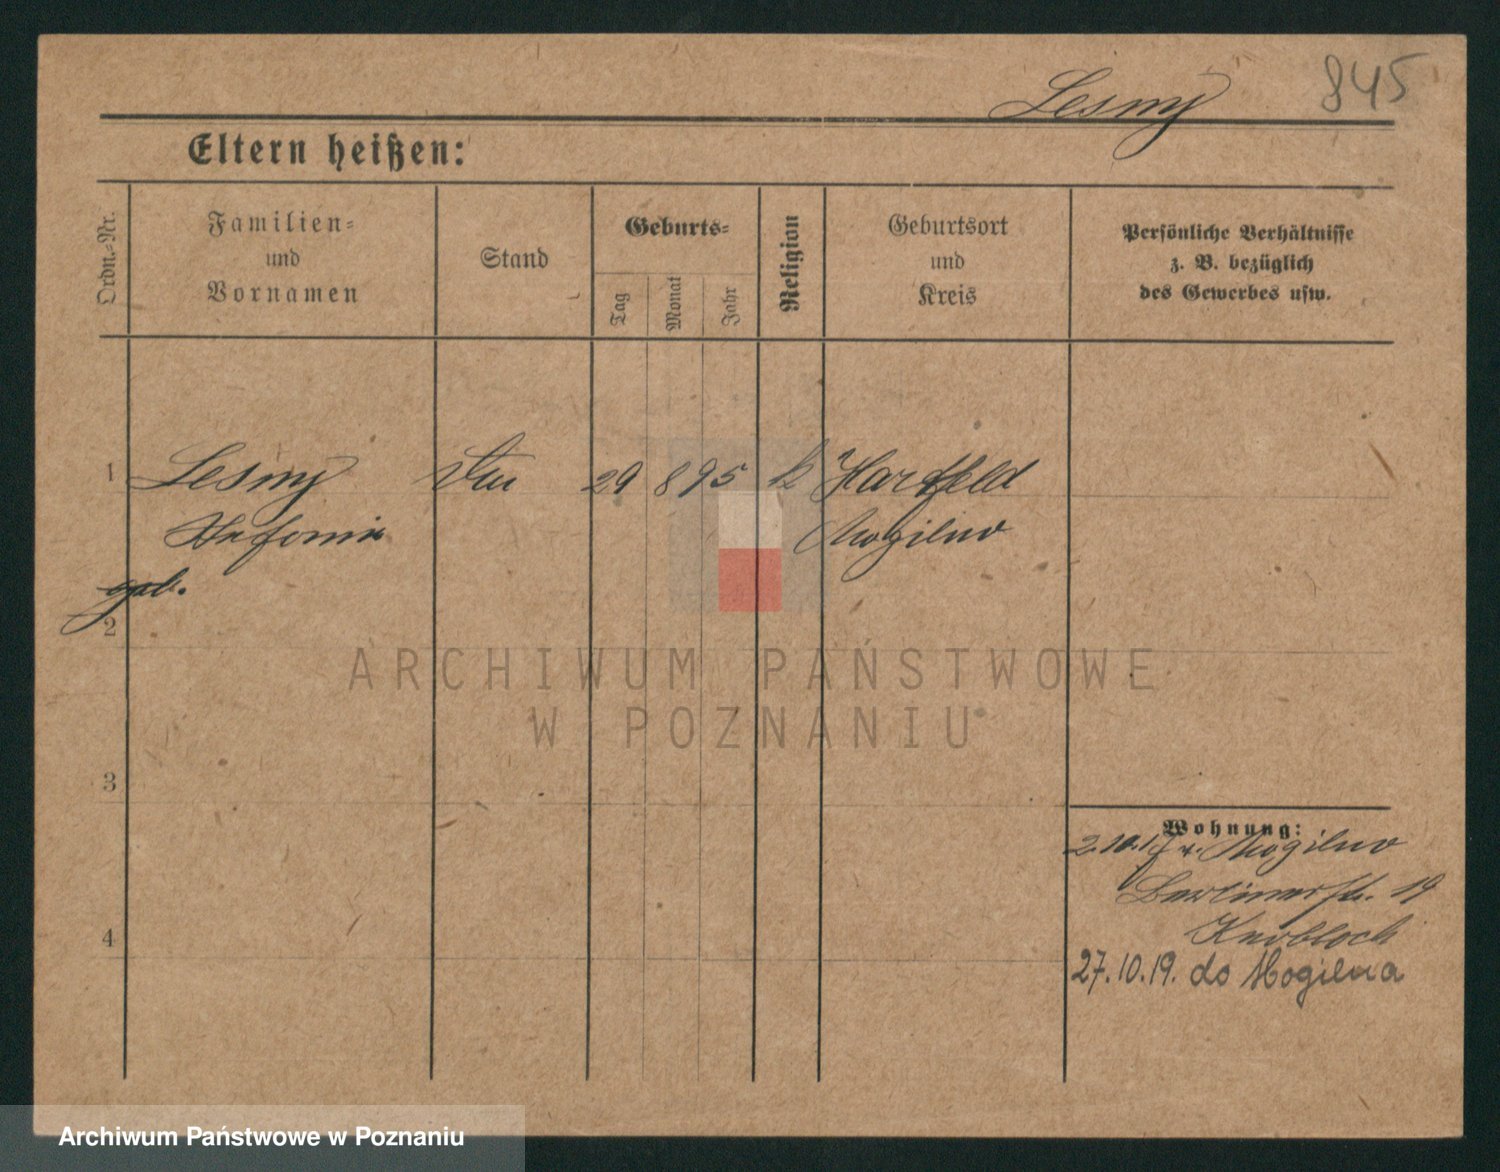 845
Lesny
Eltern heißen:
Ordn.-Nr.
Familien-
und
Vornamen
Stand
Geburts-
Tag
Monat
Jahr
Religion
Geburtsort
und
Kreis
Persönliche Verhältnisse
z. B. bezüglich
des Gewerbes usw.
1 Lesny 29 8 95 k Hartfeld
Mogilno
2
3
4
Wohnung:
2.10.17 v. Mogilno
Berlinerstr. 19
Knobloch
27.10.19. do Mogilna
ARCHIWUM PAŃSTWOWE
W POZNANIU
Archiwum Państwowe w Poznaniu